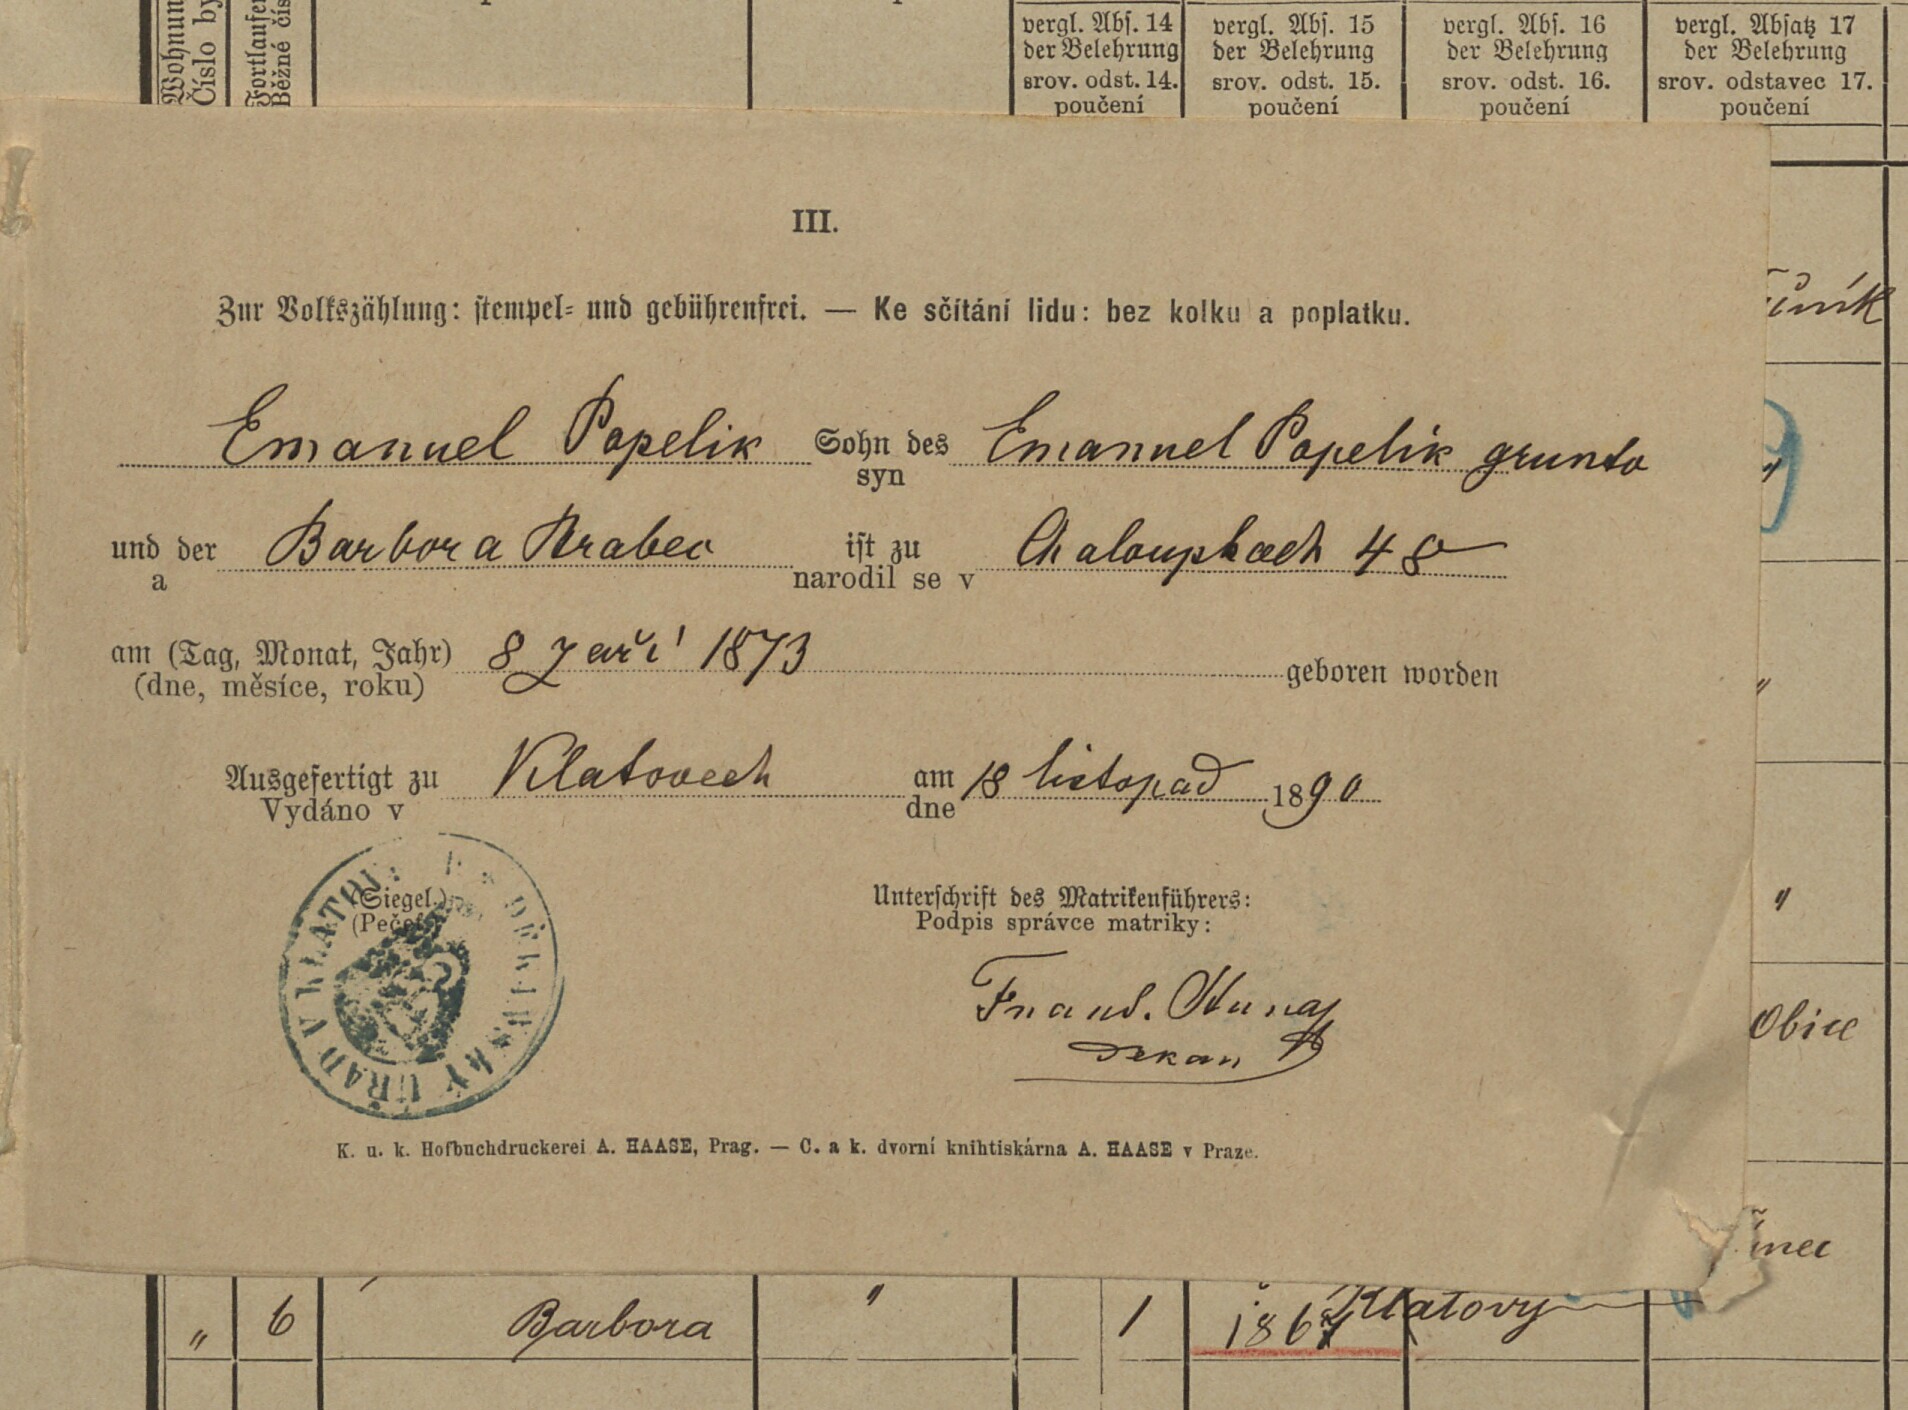 Wohnun
Číslo by
Fortlaufen
Běžné čís
vergl. Abs. 14
der Belehrung
srov. odst. 14.
poučení
vergl. Abs. 15
der Belehrung
srov. odst. 15.
poučení
vergl. Abs. 16
der Belehrung
srov. odst. 16.
poučení
vergl. Absatz 17
der Belehrung
srov. odstavec 17.
poučení
III.
Zur Volkszählung: stempel- und gebührenfrei. — Ke sčítání lidu: bez kolku a poplatku.
Emanuel Popelik Sohn des Emanuel Popelik grunto
syn
und der Barbora Hrabec ist zu Chaloupkach 48
a narodil se v
am (Tag, Monat, Jahr) 8 září 1873 geboren worden
(dne, měsíce, roku)
Ausgefertigt zu Klatovech am 18 listopad 1890
Vydáno v dne
(Siegel.)
(Pečeť)
DĚKANSKÝ ÚŘAD V KLATOV
Unterschrift des Matrikenführers:
Podpis správce matriky:
Dekan
K. u. k. Hofbuchdruckerei A. HAASE, Prag. — C. a k. dvorní knihtiskárna A. HAASE v Praze.
Obice
" 6 Barbora " 1 1867 Klatovy